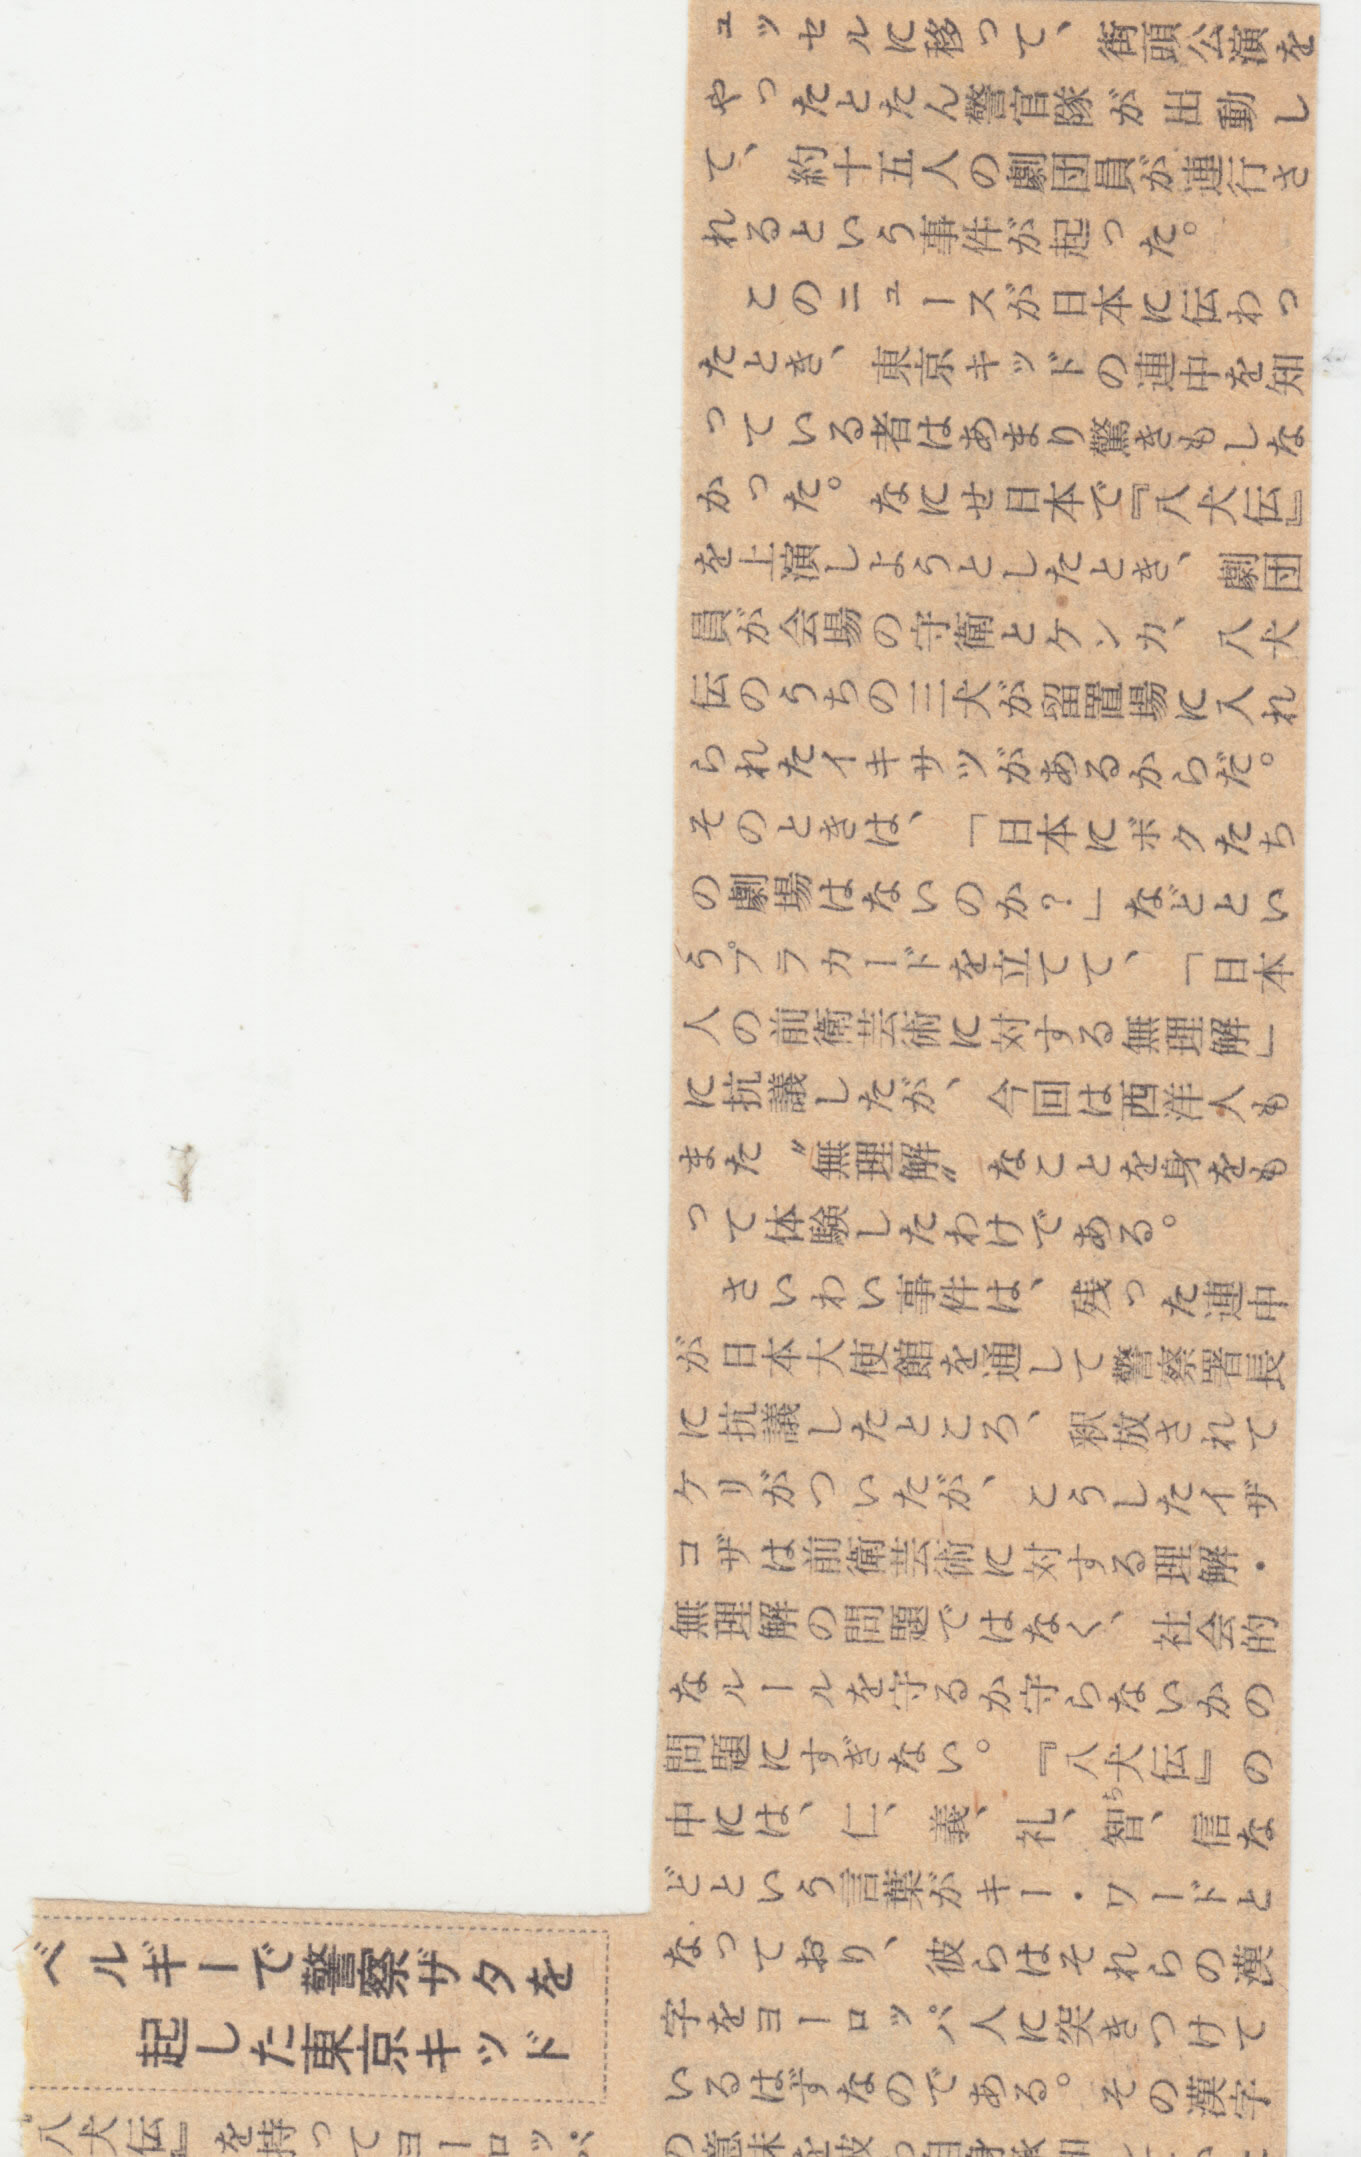 ベルギーで警察ザタを
起した東京キッド
『八犬伝』を持ってヨーロッパ
ュッセルに移って、街頭公演を
やったとたん警官隊が出動し
て、約十五人の劇団員が連行さ
れるという事件が起った。
このニュースが日本に伝わっ
たとき、東京キッドの連中を知
っている者はあまり驚きもしな
かった。なにせ日本で『八犬伝』
を上演しようとしたとき、劇団
員が会場の守衛とケンカ、八犬
伝のうちの三犬が留置場に入れ
られたイキサツがあるからだ。
そのときは、「日本にボクたち
の劇場はないのか？」などとい
うプラカードを立てて、「日本
人の前衛芸術に対する無理解」
に抗議したが、今回は西洋人も
また〝無理解〟なことを身をも
って体験したわけである。
さいわい事件は、残った連中
が日本大使館を通して警察署長
に抗議したところ、釈放されて
ケリがついたが、こうしたイザ
コザは前衛芸術に対する理解・
無理解の問題ではなく、社会的
なルールを守るか守らないかの
問題にすぎない。『八犬伝』の
中には、仁、義、礼、智、信な
どという言葉がキー・ワードと
なっており、彼らはそれらの漢
字をヨーロッパ人に突きつけて
いるはずなのである。その漢字
の意味を彼ら自身